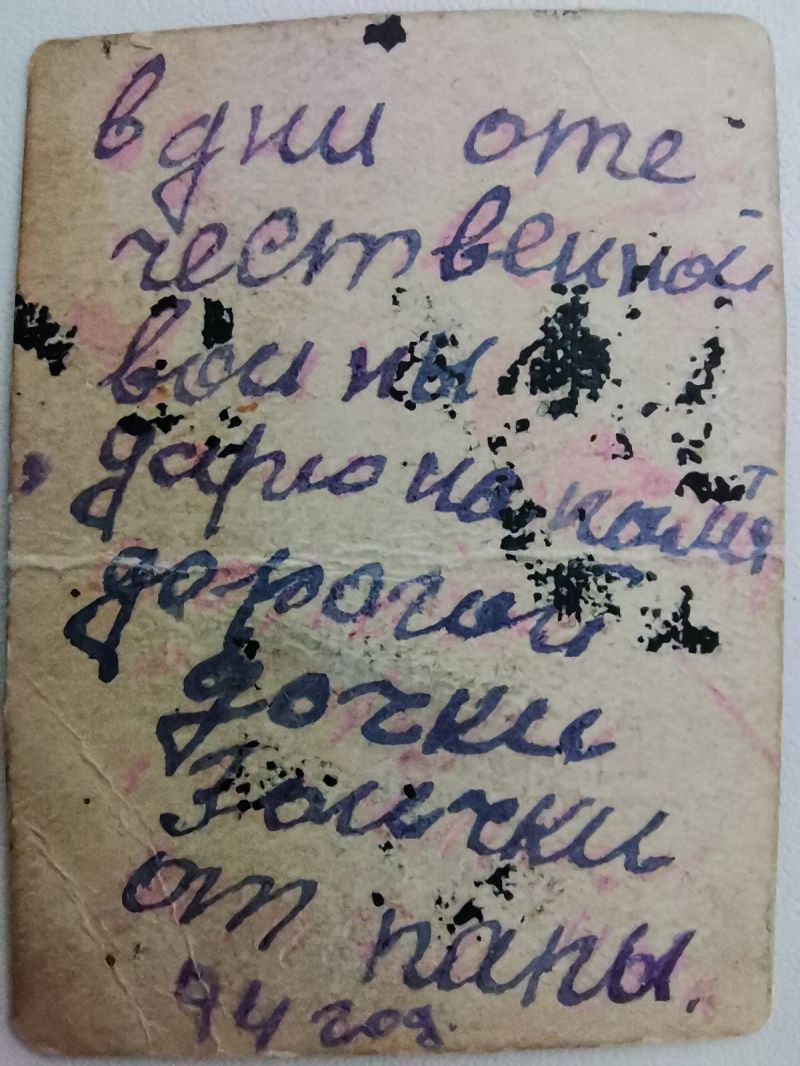 в дни оте
чественной
войны
дарю на памят
дорогой
дочки
Гоички
от папы.
44 год.